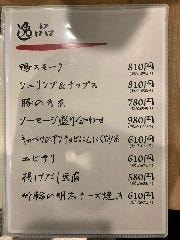 逸品
鴨スモーク 810円
シーリング&チップス 810円
豚の角煮 780円
ソーセージ盛り合わせ 980円
キャベツのアンチョビにんにく炒め 610円
エビチリ 610円
揚げだし豆腐 580円
竹輪の明太チーズ焼き 610円